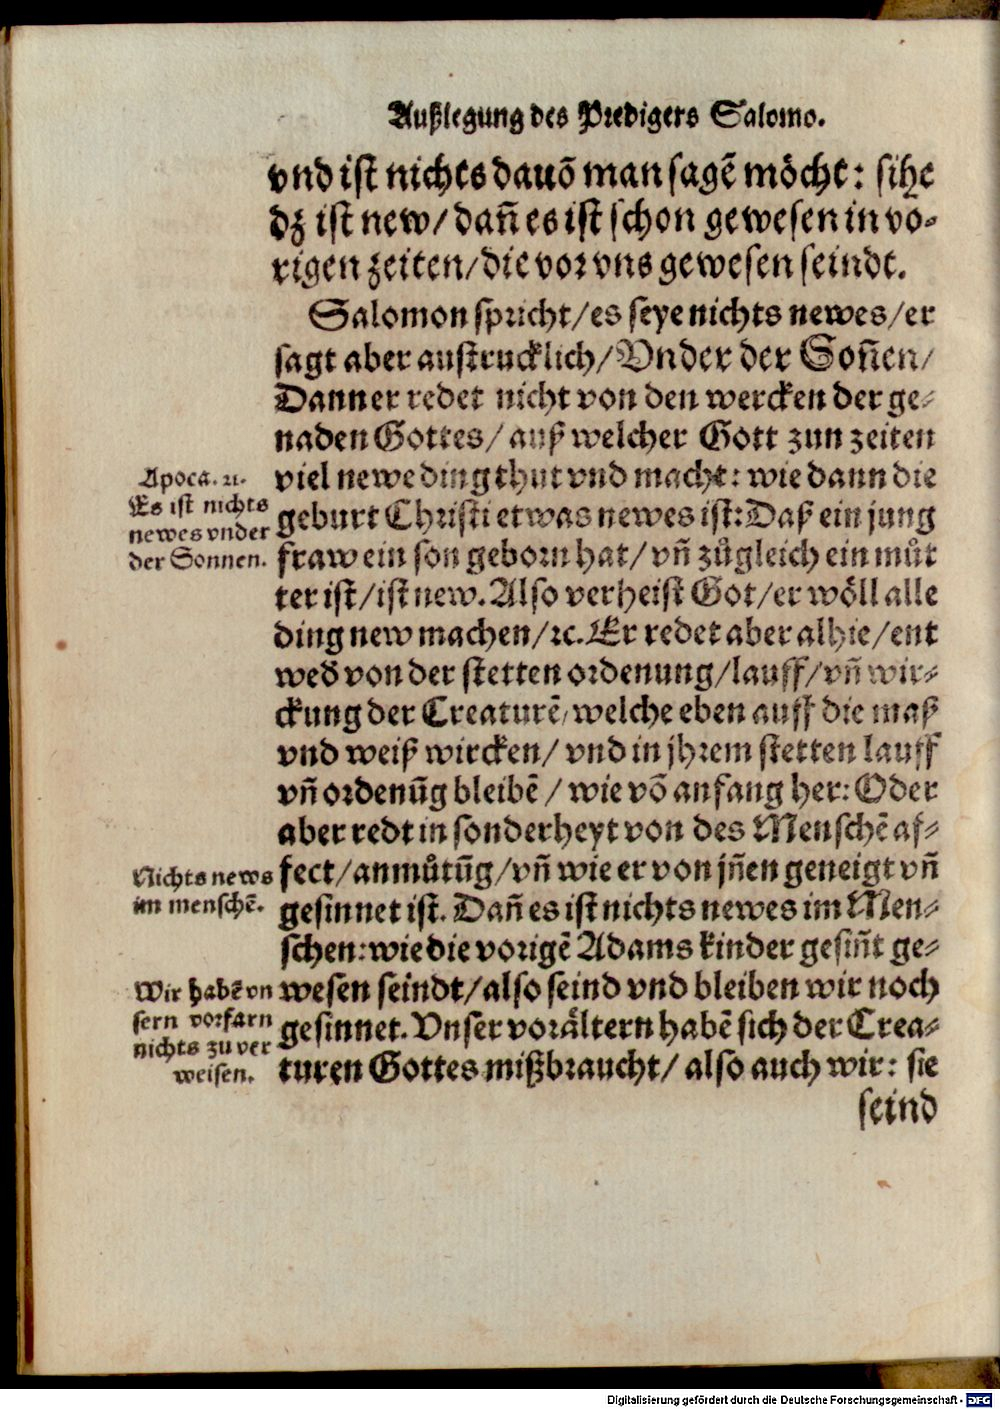 Außlegung des Predigers Salomo.
vnd ist nichts dauō man sagē möcht: sihe
dz ist new/ dañ es ist schon gewesen in vo⸗
rigen zeiten/ die vor vns gewesen seindt.
Salomon spricht/ es seye nichts newes/ er
sagt aber austrucklich/ Vnder der Soñen/
Dann er redet nicht von den wercken der ge⸗
naden Gottes/ auß welcher Gott zun zeiten
viel newe ding thut vnd macht: wie dann die
geburt Christi etwas newes ist: Daß ein jung
fraw ein son geborn hat/ vñ zůgleich ein můt
ter ist/ ist new. Also verheist Got/ er wöll alle
ding new machen/ ꝛc. Er redet aber alhie/ ent
wed̃ von der stetten ordenung/ lauff/ vñ wir⸗
ckung der Creaturē/ welche eben auff die maß
vnd weiß wircken/ vnd in jhrem stetten lauff
vñ ordenũg bleibē/ wie vō anfang her: Oder
aber redt in sonderheyt von des Menschē af⸗
fect/ anmůtũg/ vñ wie er von jñen geneigt vñ
gesinnet ist. Dañ es ist nichts newes im Men⸗
schen: wie die vorigē Adams kinder gesiñt ge⸗
wesen seindt/ also seind vnd bleiben wir noch
gesinnet. Vnser vorältern habē sich der Crea⸗
turen Gottes mißbraucht/ also auch wir: sie
seind
Apoca. 21.
Es ist nichts
newes vnder
der Sonnen.
Nichts news
im menschē.
Wir habē vn
sern vorfarn
nichts zu ver
weisen.
Digitalisierung gefördert durch die Deutsche Forschungsgemeinschaft - DFG